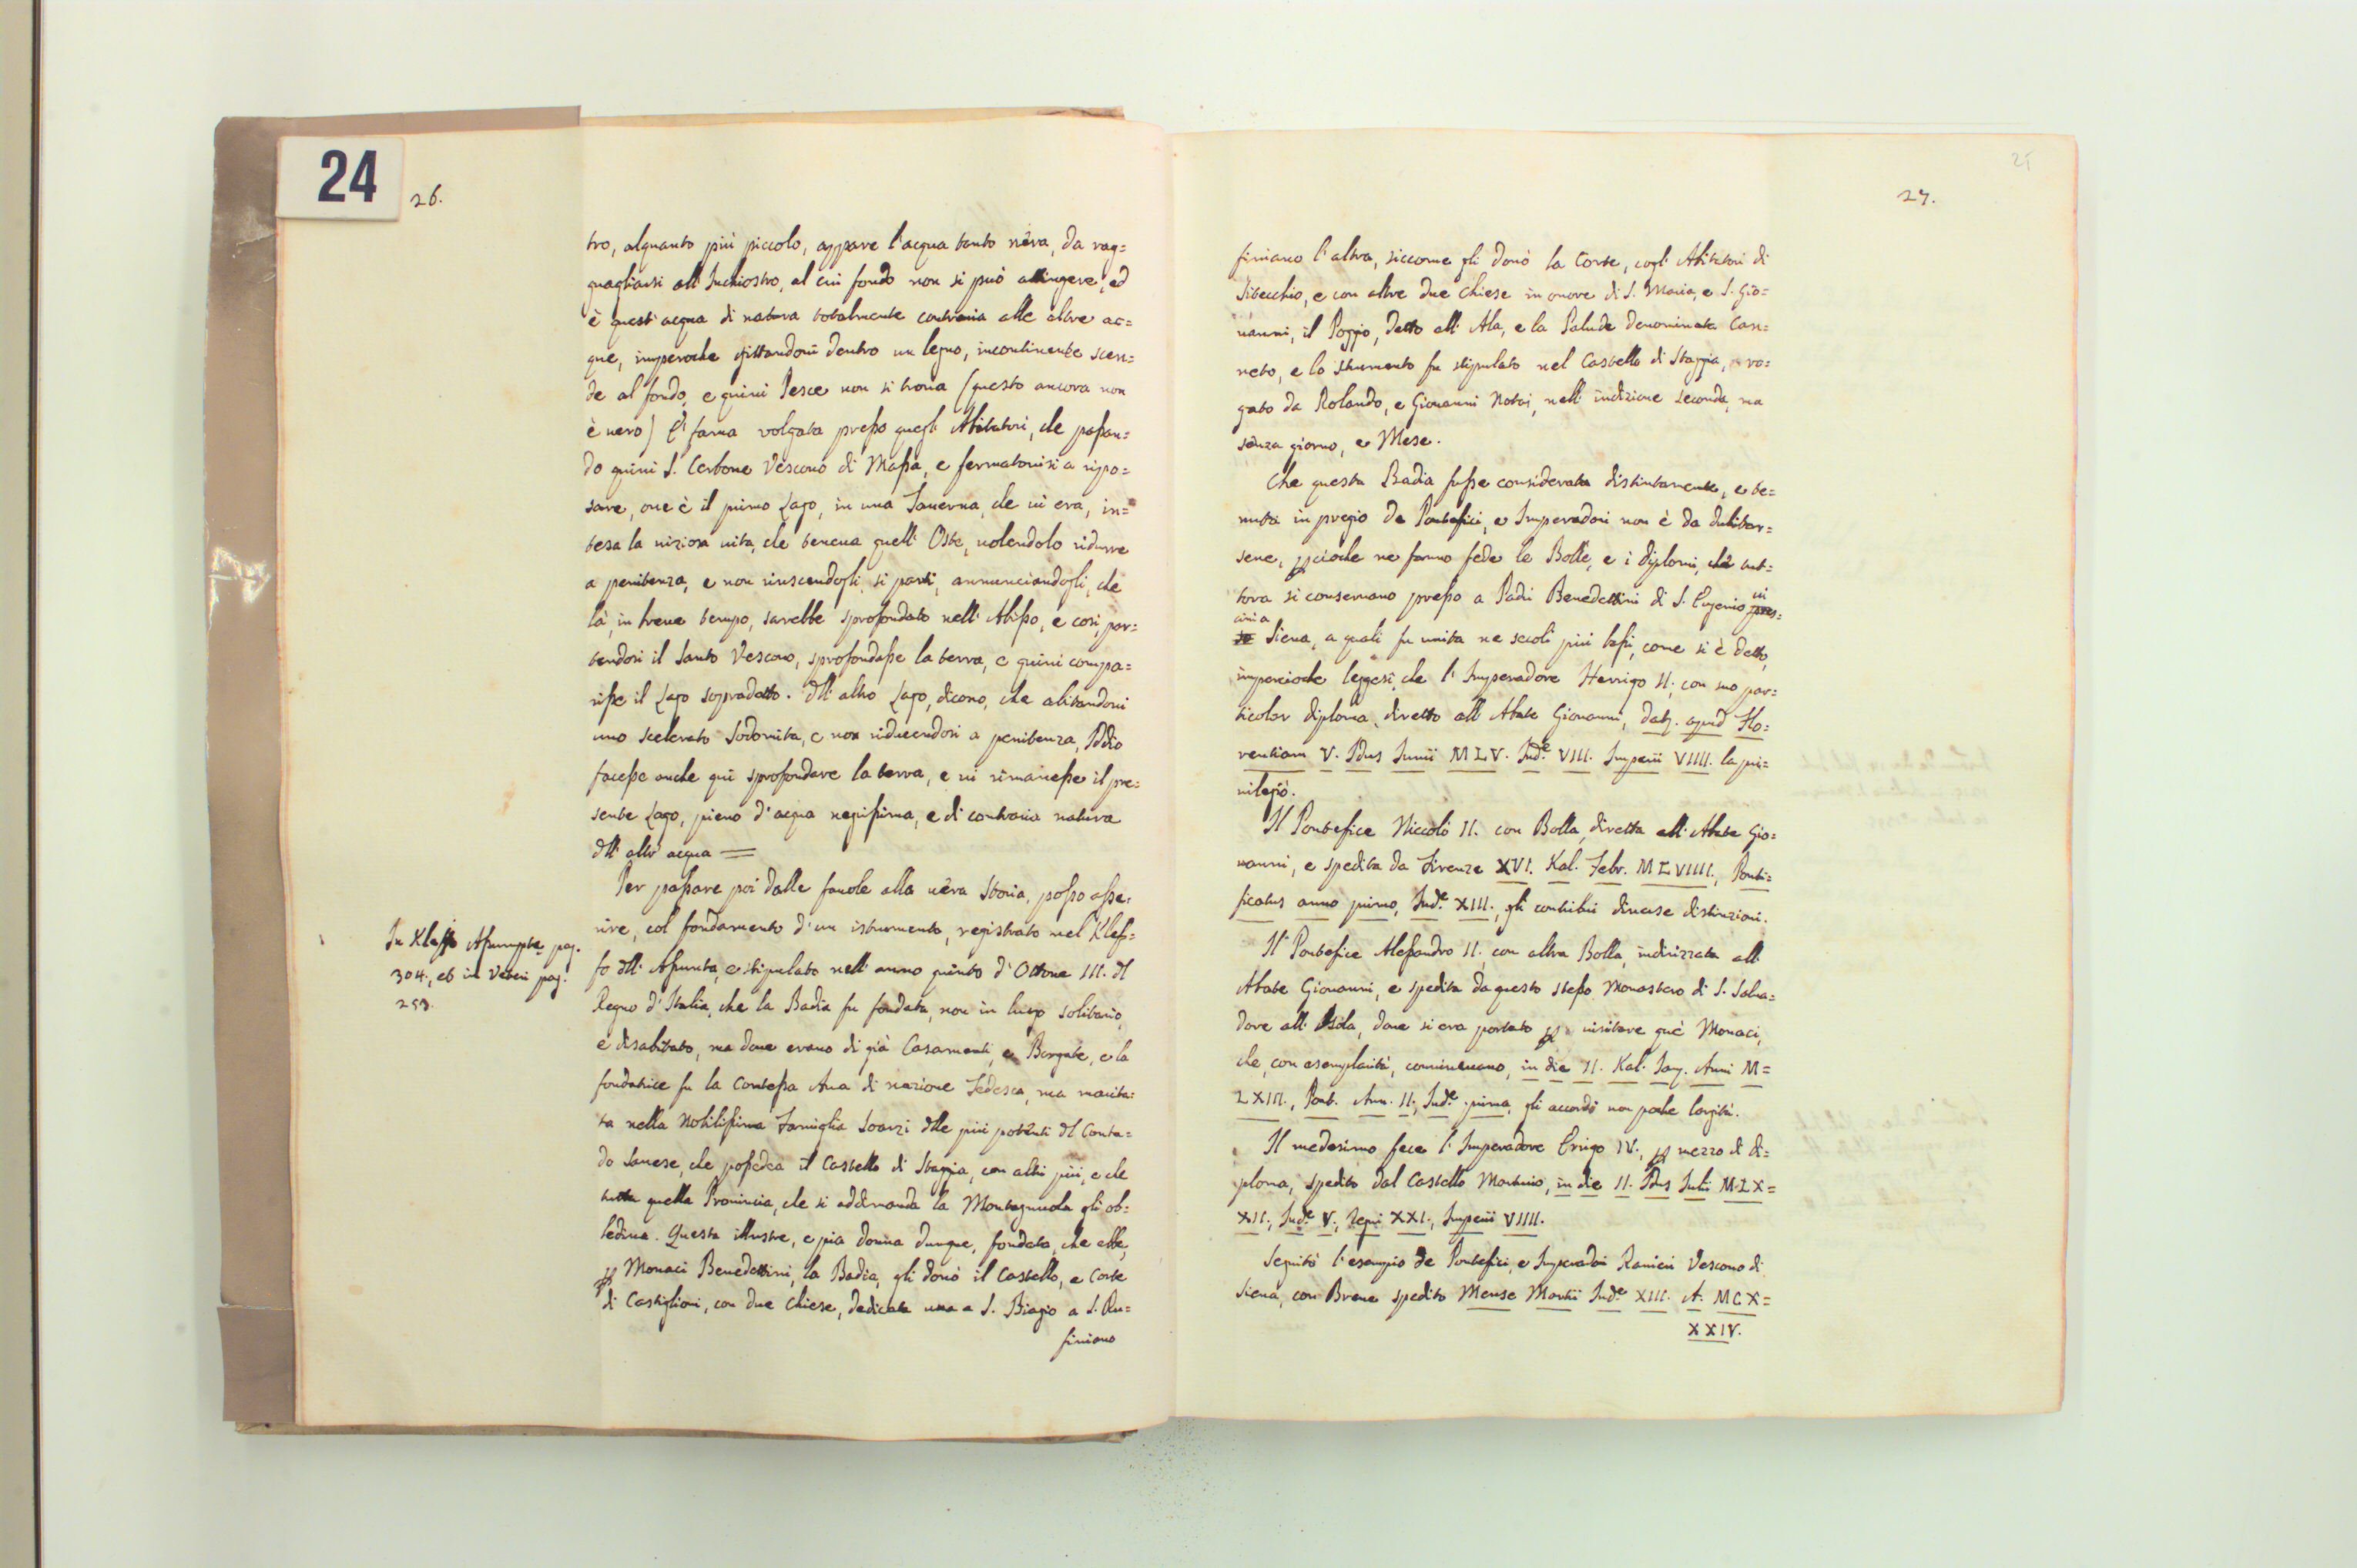 24
26.
tro, alquanto più piccolo, appare l'acqua tanto nera, da rag=
guagliarsi all'Inchiostro, al cui fondo non si può attingere, ed
è quest'acqua di natura totalmente contraria alle altre ac=
que, imperoche gittandoui dentro un legno, incontinente scen=
de al fondo, e quiui Pesce non si troua (questo ancora non
è uero) È fama volgata presso quegli Abitatori, che passan=
do quiui S. Cerbone Vescouo di Massa, e fermatouisi a ripo=
sare, oue è il primo Lago, in una Tauerna, che ui era, in=
tesa la uiziosa uita, che teneua quell'Oste, uolendolo ridurre
a penitenza, e non riuscendogli, si partì, annunciandogli, che
là, in breue tempo, sarebbe sprofondato nell'Abisso, e così, par=
tendosi il Santo Vescouo, sprofondasse la terra, e quiui compa=
risse il Lago sopradetto. Dll'altro Lago, dicono, che abitandoui
uno scelerato Sodomita, e non riducendosi a penitenza, Iddio
facesse anche quì sprofondare la terra, e ui rimanesse il pre=
sente Lago, pieno d'acqua negrissima, e di contraria natura
dll'altr'acqua =
Per passare poi dalle fauole alla uera Storia, posso asse=
rire, col fondamento d'un istrumento, registrato nel Klef=
fo dll'Assunta, e stipulato nell'anno quinto d'Ottone III. dl
Regno d'Italia, che la Badia fu fondata, non in luogo solitario,
e disabitato, ma doue erano di già Casamenti, e Borgate, e la
fondatrice fu la Contessa Aua di nazione Tedesca, ma marita=
ta nella Nobilissima Famiglia Soarzi dlle più potenti dl Conta=
do Sanese, che possedea il Castello di Staggia, con altri più, e che
tutta quella Prouincia, che si addimanda la Montagnuola gli ob=
bediua. Questa illustre, e pia donna dunque, fondata, che ebbe,
p Monaci Benedettini, la Badia, gli donò il Castello, e Corte
di Castiglioni, con due Chiese, dedicate una a S. Biagio a S. Ru=
finiano
In Kleffo Assumptę pag.
304., et in Veteri pag.
253.
25
27.
finiano l'altra, siccome gli donò la Corte, cogli Abitatori di
Sibecchio, e con altre due Chiese in onore di S. Maria, e S. Gio=
uanni, il Poggio, detto all'Ala, e la Palude denominata Can=
neto, e lo strumento fu stipulato nel Castello di Staggia, ro=
gato da Rolando, e Giouanni Notai, nell'indizione seconda, ma
senza giorno, e Mese.
Che questa Badia fusse considerata distintamente, e te=
nuta in pregio da Pontefici, e Imperadori non è da dubitar=
sene, pcioche ne fanno fede le Bolle, e i diplomi, che tut=
tora si conseruano presso a Padri Benedettini di S. Eugenio ui
cini a Siena, a quali fu unita ne secoli più bassi, come si è detto,
imperocioche leggesi, che l'Imperadore Herrigo II., con suo par=
ticolar diploma, diretto all'Abate Giouanni, datę. apud Flo=
rentiam V. Idus Iunii MLV. Indę. VIII. Imperii VIIII. la pri=
uilegiò.
Il Pontefice Niccolò II. con Bolla, diretta all'Abate Gio=
uanni, e spedita da Firenze XVI. Kal. Febr. MLVIIII., Ponti=
ficatus anno primo, Indę. XIII., gli contribuì diuerse distinzioni.
Il Pontefice Alessandro II., con altra Bolla, indirizzata all'
Abate Giouanni, e spedita da questo stesso Monastero di S. Salua=
dore all'Isola, doue si era portato p uisitare que' Monaci,
che, con esemplarità, conuiueuano, in die II. Kal. Ian. Anni M=
LXIII., Pont. Ann. II., Indę. prima, gli accordò non poche largità.
Il medesimo fece l'Imperadore Errigo IV., p mezzo di di=
ploma, spedito dal Castello Marturio, in die II. Idus Iulii MLX=
XII., Indę. V., Regni XXI., Imperii VIIII.
Seguitò l'esempio de Pontefici, e Imperadori Ranieri Vescouo di
Siena, con Breue spedito Mense Martii Indę XIII. A. MCX=
XXIV.